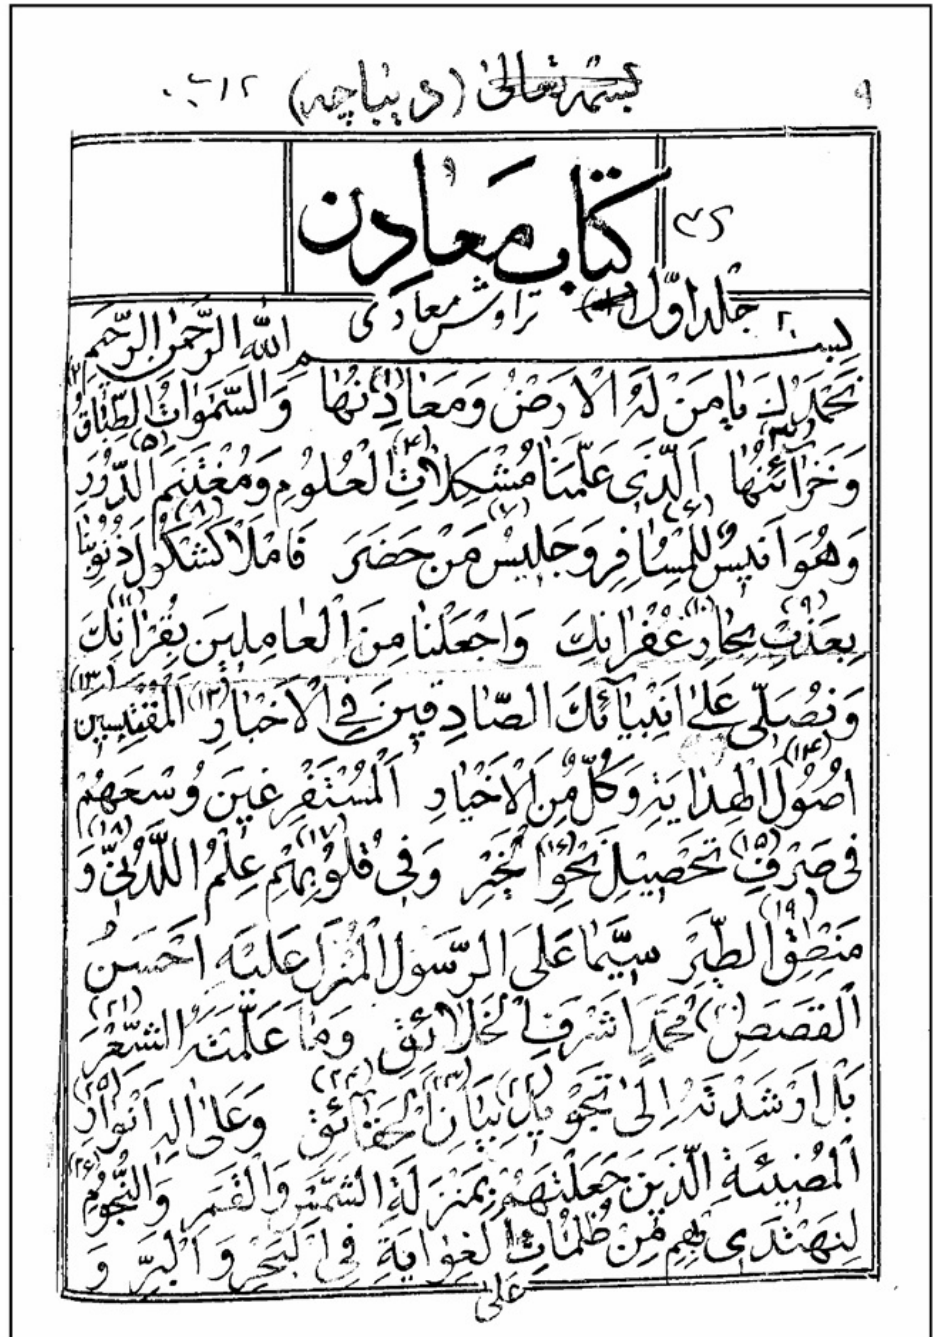 ۹ بسمه تعالیٰ (دیباچه)
کتاب معادن
جلد اوّل تراوش معادی
بسم الله الرّحمن الرّحیم
نَحْمَدُكَ یَا مَنْ لَهُ الْاَرَضُ وَمَعَادِنُهَا وَالسَّمٰوَاتُ الطِّبَاقُ
وَخَزَآئِنُهَا اَلَّذِی عَلَّمَنَا مُشْکِلَاتِ الْعُلُومِ وَمُغْتَنَمِ الدُّرَرِ
وَهُوَ اَنِیسٌ لِلْمُسَافِرِ وَجَلِیسُ مَنْ حَضَرَ فَامْلَأْ کَشْکُولَ ذُنُوبِنَا
بِعَذْبِ بِحَارِ غُفْرَانِكَ وَاجْعَلْنَا مِنَ الْعَامِلِینَ بِقُرْاٰنِكَ
وَنُصَلِّی عَلیٰ اَنْبِیَآئِكَ الصَّادِقِینَ فِی الْاَخْبَارِ الْمُقْتَبِسِینَ
اُصُولَ الْهِدَایَةِ وَکُلٍّ مِّنَ الْاَخْیَارِ اَلْمُسْتَفْرِغِینَ وُسْعَهُمْ
فی صَرْفِ تَحْصِیلِ نَحْوِ الْخَیْرِ وَفِی قُلُوبِهِمْ عِلْمُ اللَّدُنِّی وَ
مَنْطِقِ الطَّیْرِ سِیَّمَا عَلَی الرَّسُولِ الْمُنْزَلِ عَلَیْهِ اَحْسَنُ
الْقَصَصِ مُحَمَّدٍ اَشْرَفِ الْخَلَائِقِ وَمَا عَلَّمْتَهُ الشِّعْرَ
بَلْ اَرْشَدْتَهُ اِلیٰ تَجْوِیدِ بَیَانِ الْحَقَائِقِ وَعَلیٰ اٰلِهِ اَنْوَارِ
الْمُضِیئَةِ الَّذِینَ جَعَلْتَهُمْ بِمَنْزِلَةِ الشَّمْسِ وَالْقَمَرِ وَالنُّجُومِ
لِنَهْتَدِی بِهِم مِّنْ ظُلُمَاتِ الْغِوَایَةِ فِی الْبَحْرِ وَالْبَرِّ وَ
عَلیٰ